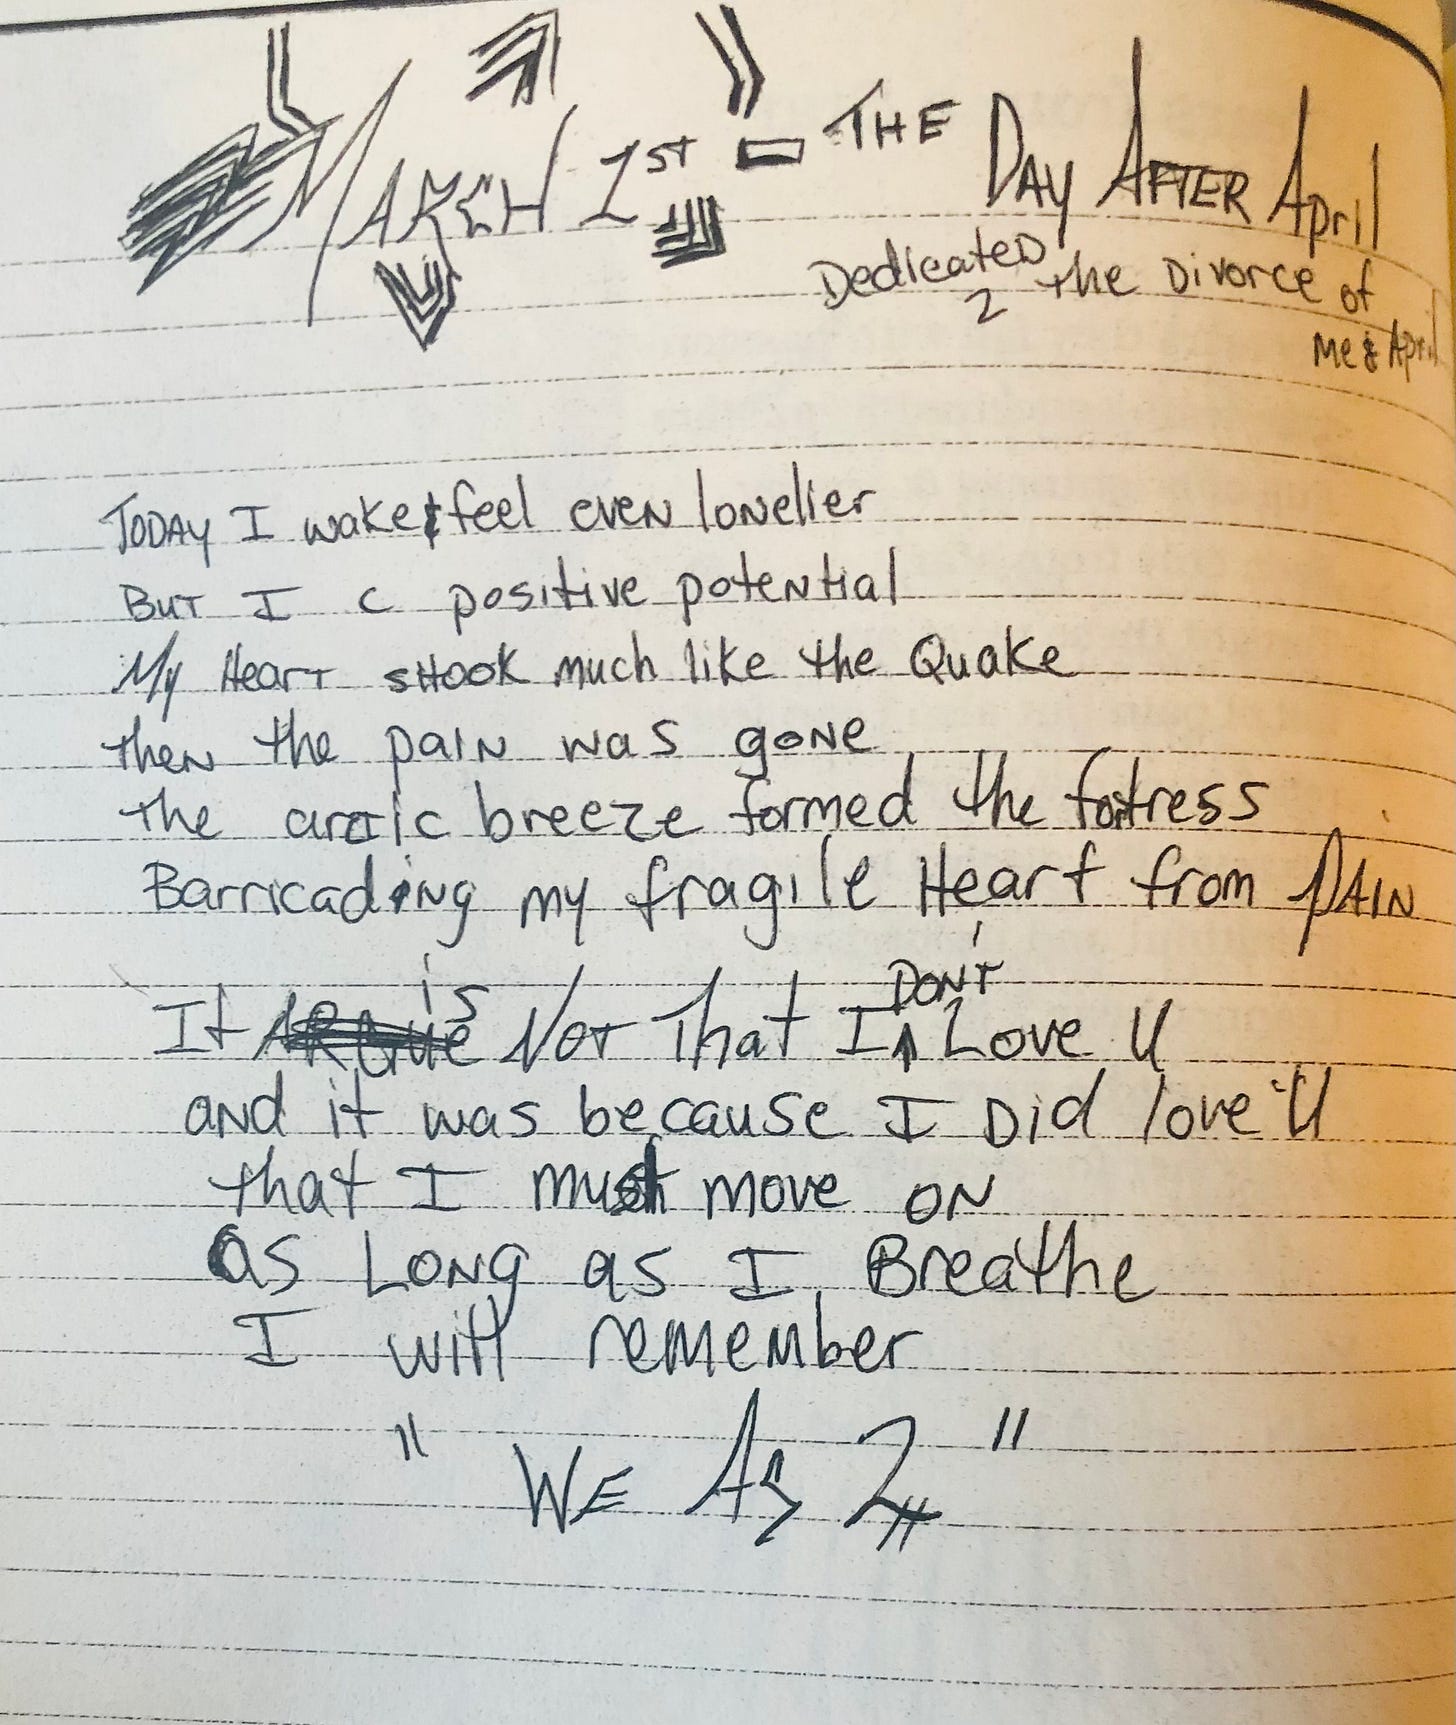 MARCH 1ST - THE DAY AFTER April
DedicateD 2 the Divorce of
Me & April
TODAY I wake & feel even lonelier
BUT I C positive potential
My Heart shook much like the Quake
then the pain was gone
the arctic breeze formed the fortress
Barricading my fragile Heart from PAIN
It is Not That I DON'T Love U
and it was because I Did love U
that I must move on
as Long as I Breathe
I will remember
" WE AS 2 "